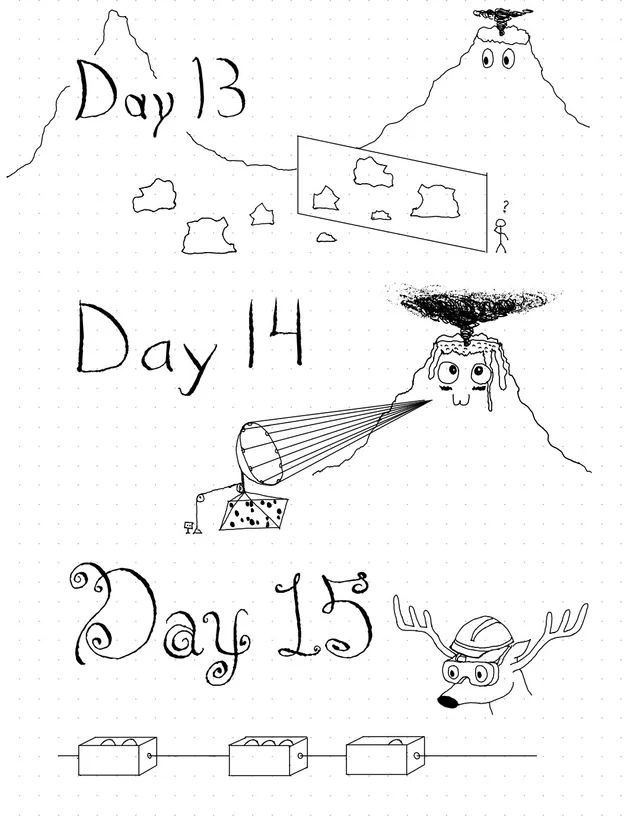 Day 13
?
Day 14
Day 15